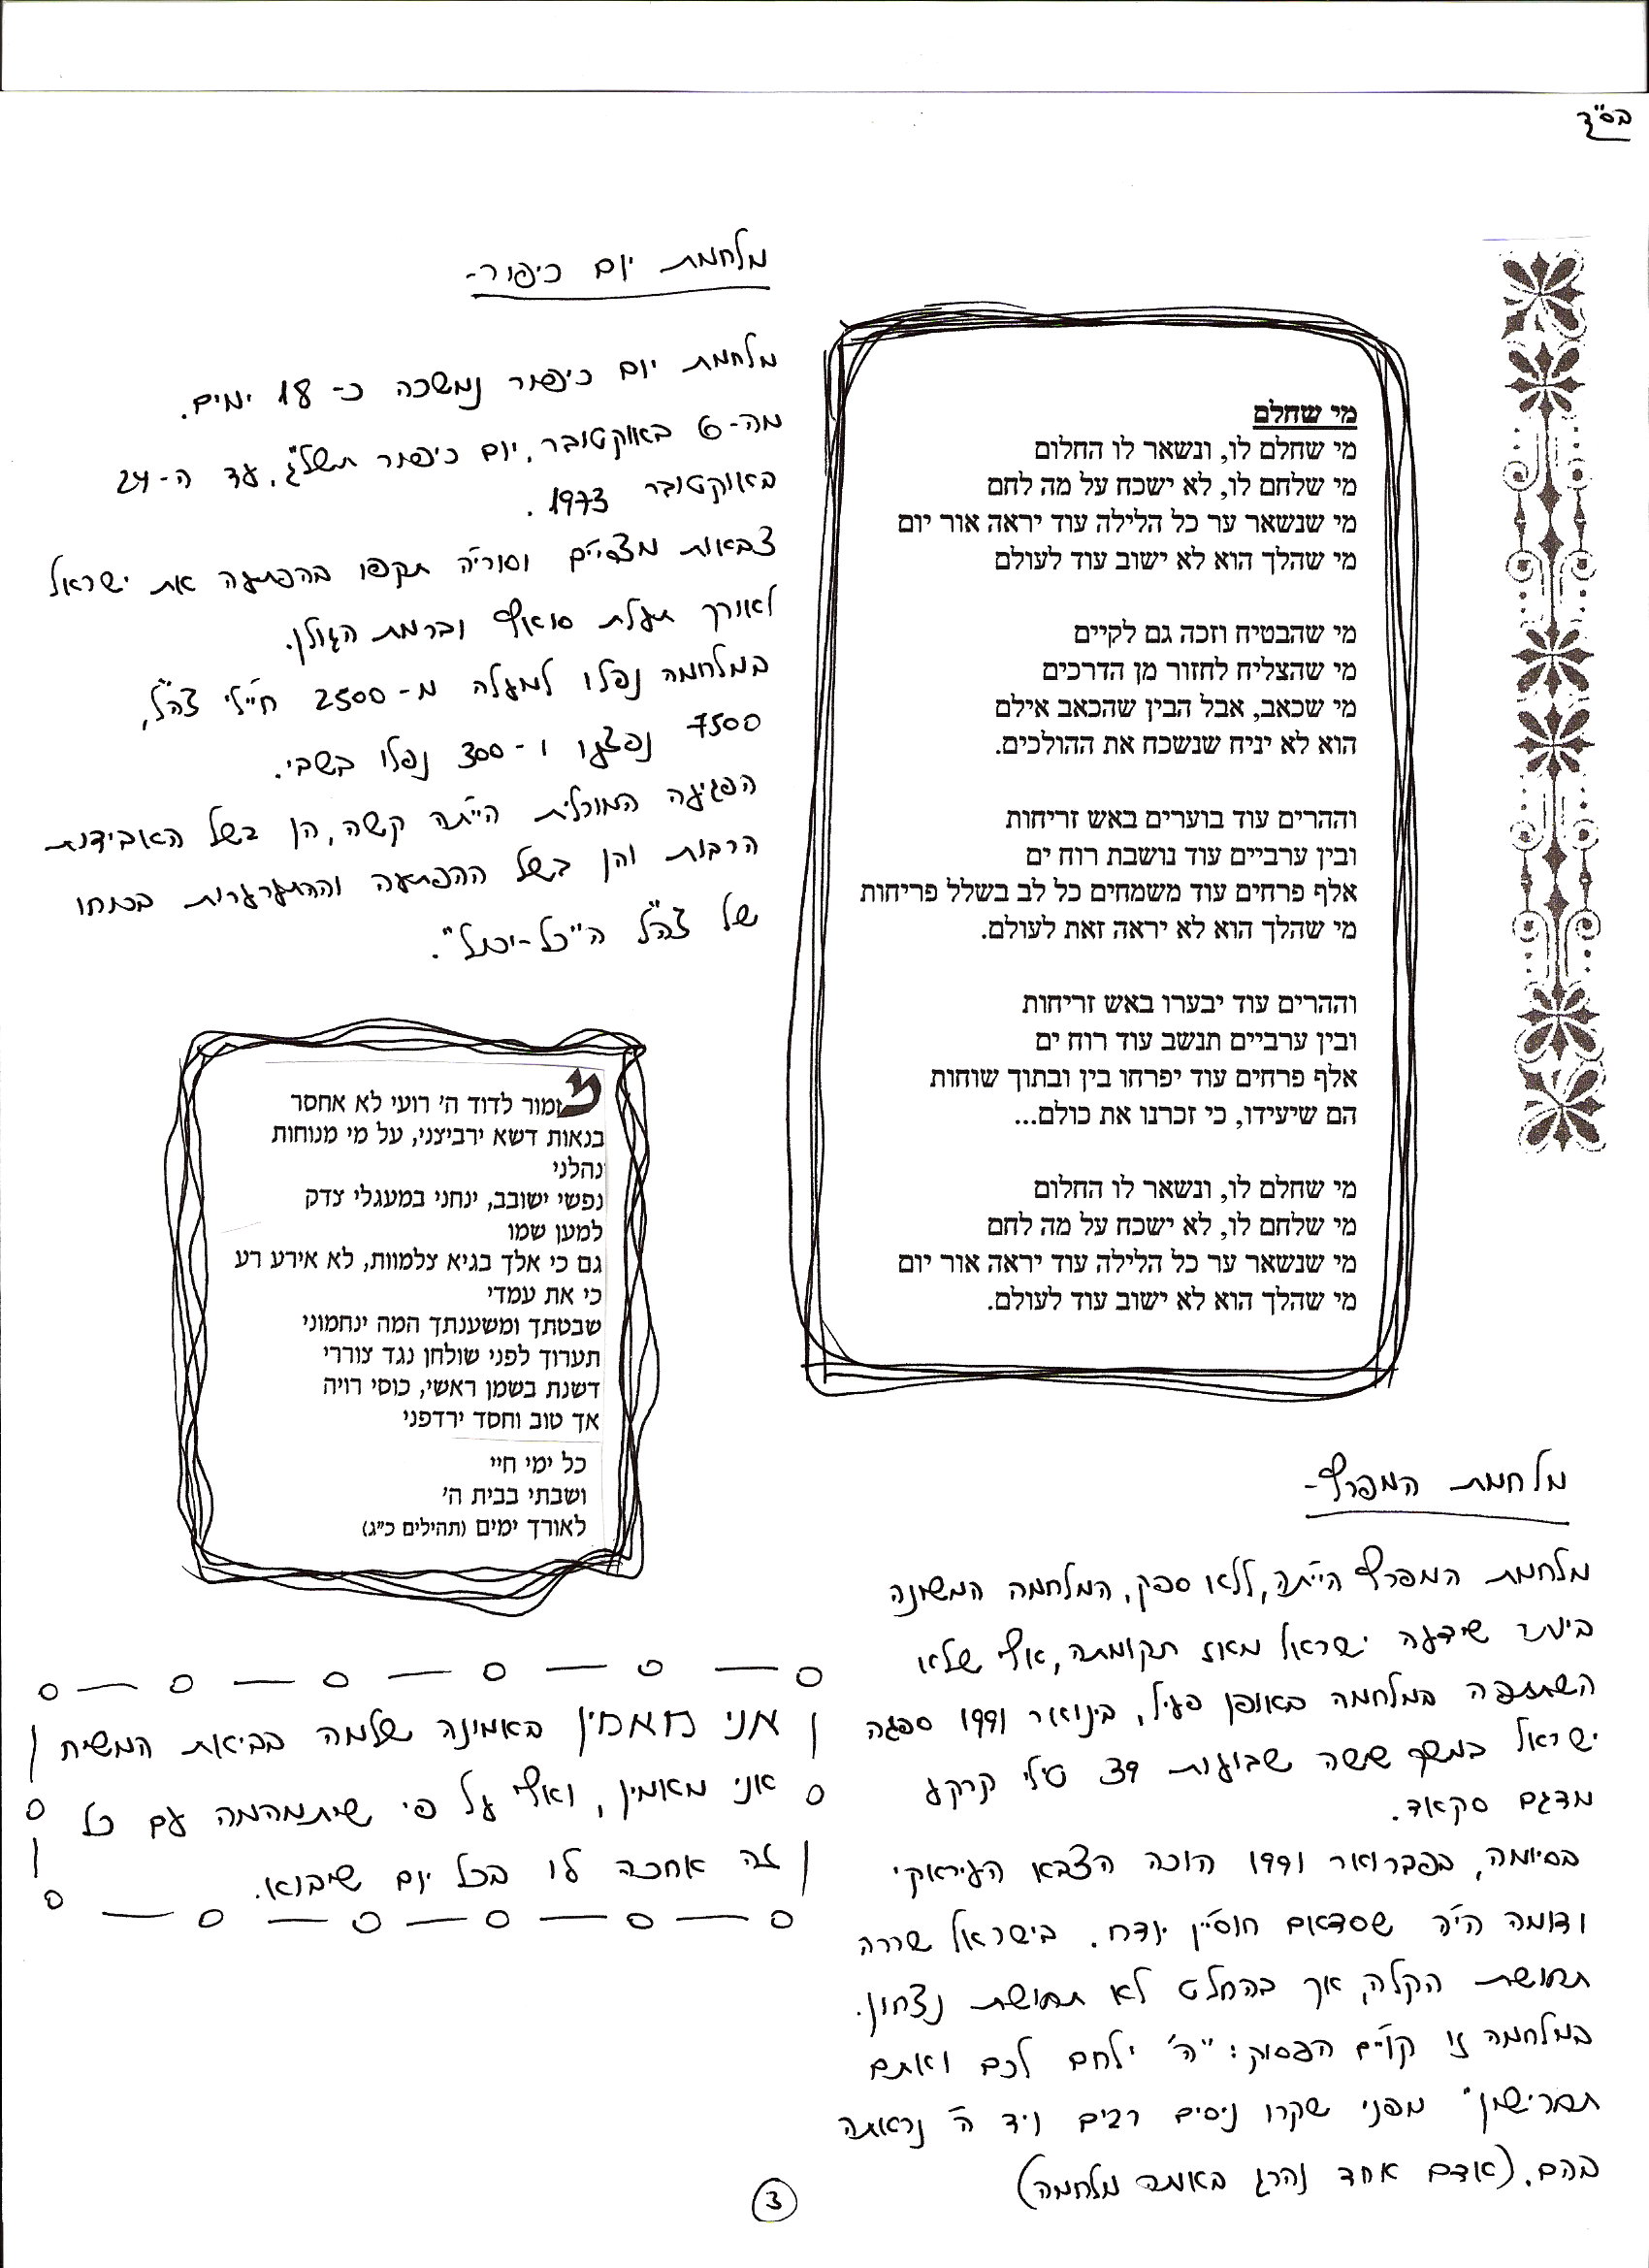 בס"ד
מי שחלם
מי שחלם לו, ונשאר לו החלום
מי שלחם לו, לא ישכח על מה לחם
מי שנשאר ער כל הלילה עוד יראה אור יום
מי שהלך הוא לא ישוב עוד לעולם
מי שהבטיח וזכה גם לקיים
מי שהצליח לחזור מן הדרכים
מי שכאב, אבל הבין שהכאב אילם
הוא לא יניח שנשכח את ההולכים.
וההרים עוד בוערים באש זריחות
ובין ערביים עוד נושבת רוח ים
אלף פרחים עוד משמחים כל לב בשלל פריחות
מי שהלך הוא לא יראה זאת לעולם.
וההרים עוד יבערו באש זריחות
ובין ערביים תנשב עוד רוח ים
אלף פרחים עוד יפרחו בין ובתוך שוחות
הם שיעידו, כי זכרנו את כולם...
מי שחלם לו, ונשאר לו החלום
מי שלחם לו, לא ישכח על מה לחם
מי שנשאר ער כל הלילה עוד יראה אור יום
מי שהלך הוא לא ישוב עוד לעולם.
מלחמת המפרץ-
מלחמת המפרץ הייתה, ללא ספק, המלחמה המשונה
ביותר שידעה ישראל מאז תקומתה, אף שלא
השתתפה במלחמה באופן פעיל, בינואר 1991 ספגה
ישראל במשך ששה שבועות 39 טילי קרקע
מדגם סקאד.
בסיומה, בפברואר 1991 הוכה הצבא העיראקי
ודומה היה שסדאם חוסיין יודח. בישראל שררה
תחושת הקלה, אך בהחלט לא תחושת נצחון.
במלחמה זו קויים הפסוק: "ה' ילחם לכם ואתם
תחרישון" מפני שקרו ניסים רבים ויד ה' נראתה
בהם. (אדם אחד נהרג באותה מלחמה)
מלחמת יום כיפור-
מלחמת יום כיפור נמשכה כ- 18 ימים.
מה-6 באוקטובר, יום כיפור תשל"ג, עד ה-24
באוקטובר 1973.
צבאות מצריים וסוריה תקפו בהפתעה את ישראל
לאורך תעלת סואץ וברמת הגולן.
במלחמה נפלו למעלה מ-2500 חיילי צה"ל,
7500 נפצעו ו-300 נפלו בשבי.
הפגיעה המורלית הייתה קשה, הן בשל האבידות
הרבות והן בשל ההפתעה וההתערערות בכוחו
של צה"ל ה"כל-יכול".
מזמור לדוד ה' רועי לא אחסר
בנאות דשא ירביצני, על מי מנוחות
נהלני
נפשי ישובב, ינחני במעגלי צדק
למען שמו
גם כי אלך בגיא צלמוות, לא אירע רע
כי את עמדי
שבטתך ומשענתך המה ינחמוני
תערוך לפני שולחן נגד צוררי
דשנת בשמן ראשי, כוסי רויה
אך טוב וחסד ירדפני
כל ימי חיי
ושבתי בבית ה'
לאורך ימים (תהילים כ"ג)
אני מאמין באמונה שלמה בביאת המשיח
אני מאמין, ואף על פי שיתמהמה עם כל
זה אחכה לו בכל יום שיבוא.
3